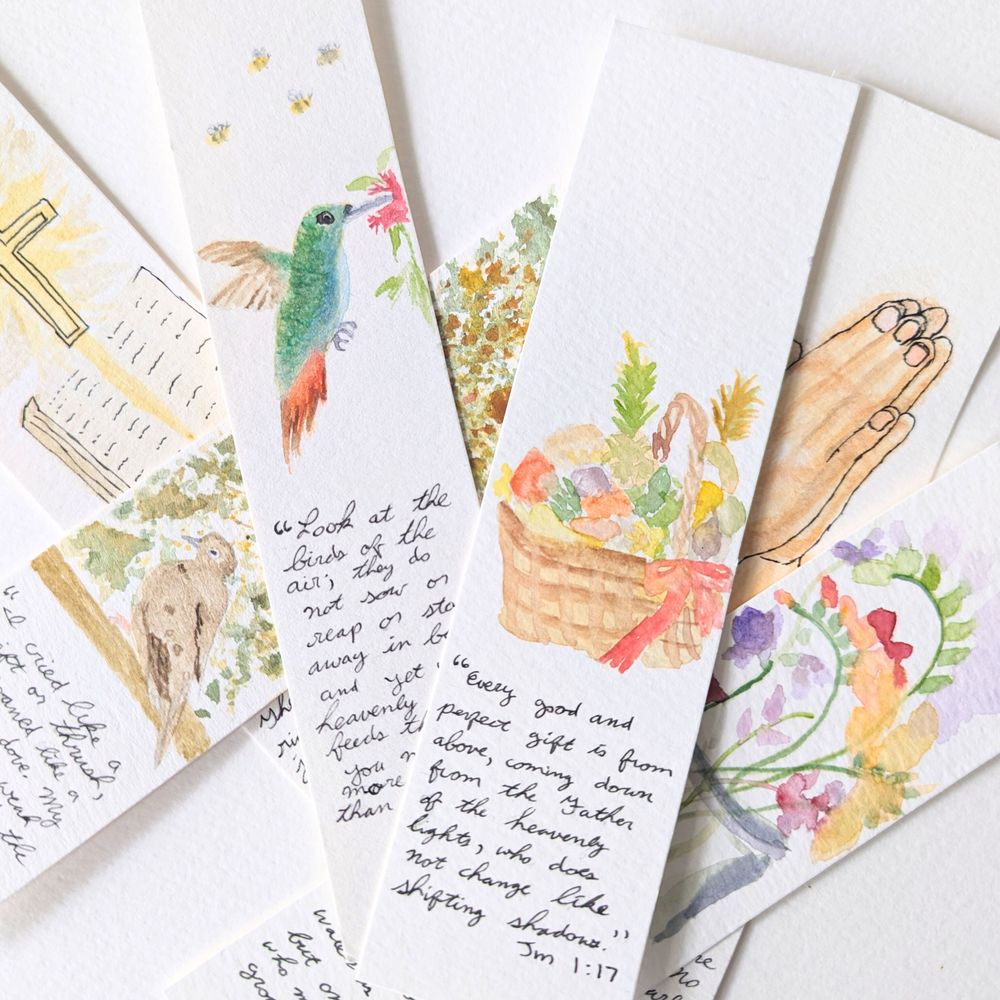 "Look at the
birds of the
air; they do
not sow or
reap or sto
away in b
and yet
heavenly
feeds th
you n
more
than
"Every good and
perfect gift is from
above, coming down
from the Father
of the heavenly
lights, who does
not change like
shifting shadows."
Jm 1:17
"I cried like a
or thrush,
moaned like a
dove. My
weak
the
but on
who m